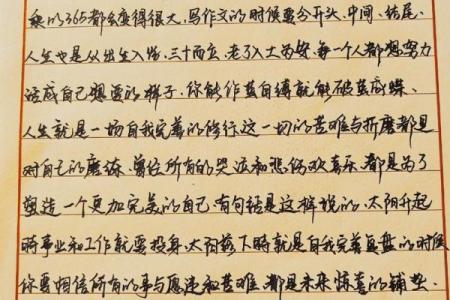 乘以365都会变得很大,写作文的时候要分开头、中间、结尾。
人生也是从出生入学,三十而立,老了入土为安,每一个人都想努力
活成自己想要的样子,你能作茧自缚就能破茧成蝶。
人生就是一场自我完善的修行,这一切的苦难与折磨都是
对自己的磨练,曾经所有的哭泣和悲伤欢喜乐,都是为了
塑造一个更加完美的自己,有句话是这样说的,太阳升起
时事业和工作就要投身,太阳落下时就是自我完善复盘的时候,
你要相信所有的事与愿违和苦难,都是未来惊喜的铺垫.